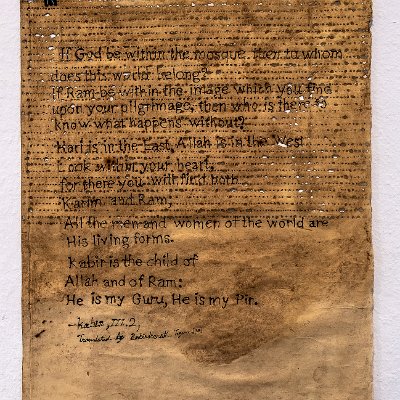 If God be within the mosque, then to whom
does this world belong?
If Ram be within the image which you find
upon your pilgrimage, then who is there to
know what happens without?
Hari is in the East, Allah is in the West.
Look within your heart,
for there you will find both
Karim and Ram;
All the men and women of the world are
His living forms.
Kabir is the child of
Allah and of Ram:
He is my Guru, He is my Pir.
—Kabir, III.2,
Translated by Rabindranath Tagore